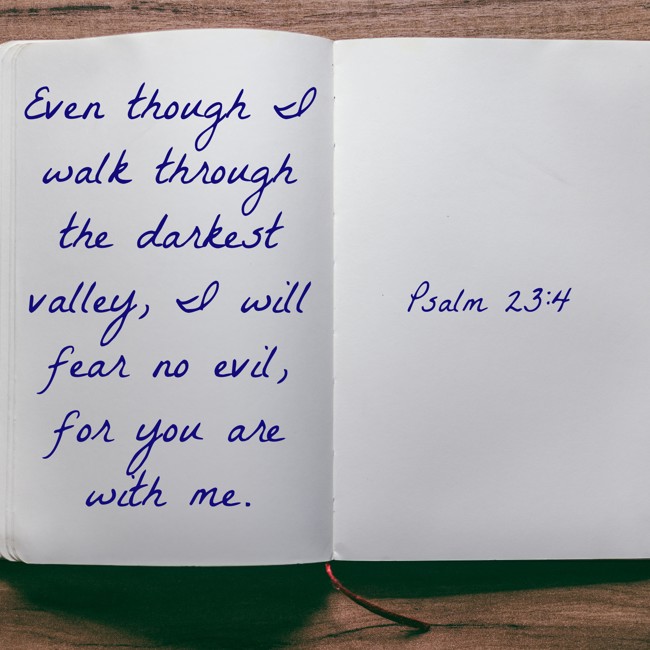 Even though I
walk through
the darkest
valley, I will
fear no evil,
for you are
with me.
Psalm 23:4